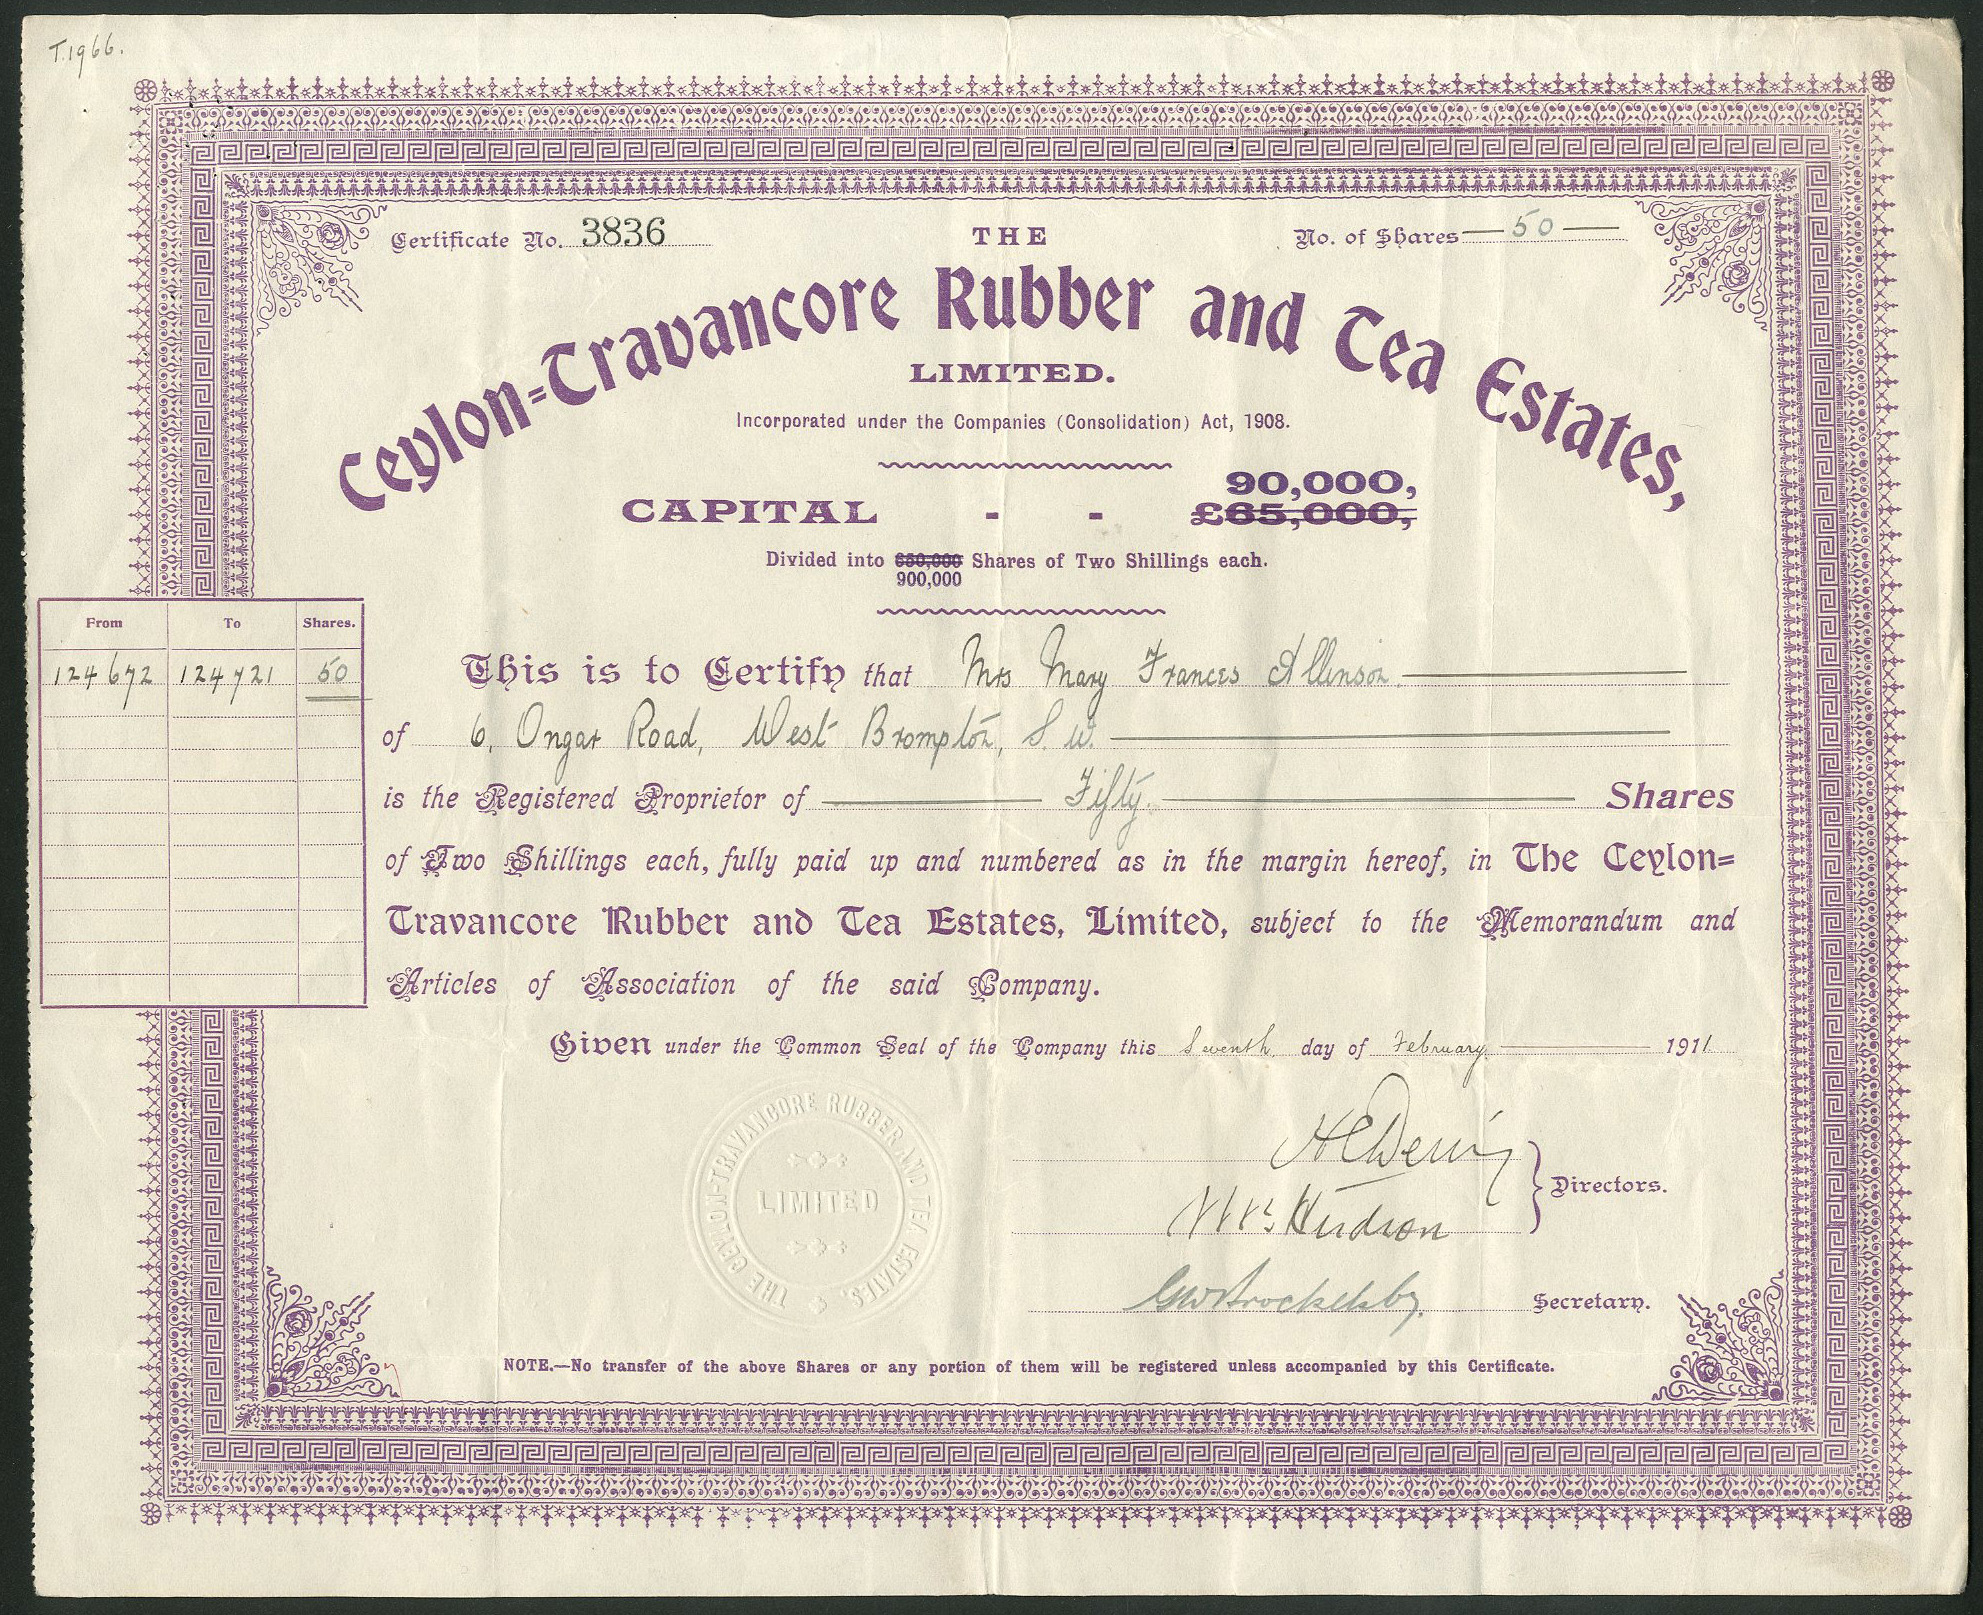 T.1966.
Certificate No. 3836
THE
No. of Shares 50
Ceylon=Travancore Rubber and Tea Estates,
LIMITED.
Incorporated under the Companies (Consolidation) Act, 1908.
90,000,
CAPITAL - - £65,000,
Divided into 650,000 Shares of Two Shillings each.
900,000
From To Shares.
124672 124721 50
This is to Certify that Mrs Mary Frances Allinson
of 6, Ongar Road, West Brompton, S.W.
is the Registered Proprietor of Fifty. Shares
of Two Shillings each, fully paid up and numbered as in the margin hereof, in The Ceylon=
Travancore Rubber and Tea Estates, Limited, subject to the Memorandum and
Articles of Association of the said Company.
Given under the Common Seal of the Company this Seventh day of February 1911
THE CEYLON-TRAVANCORE RUBBER AND TEA ESTATES,
LIMITED
Directors.
Hudson
Secretary.
NOTE.—No transfer of the above Shares or any portion of them will be registered unless accompanied by this Certificate.